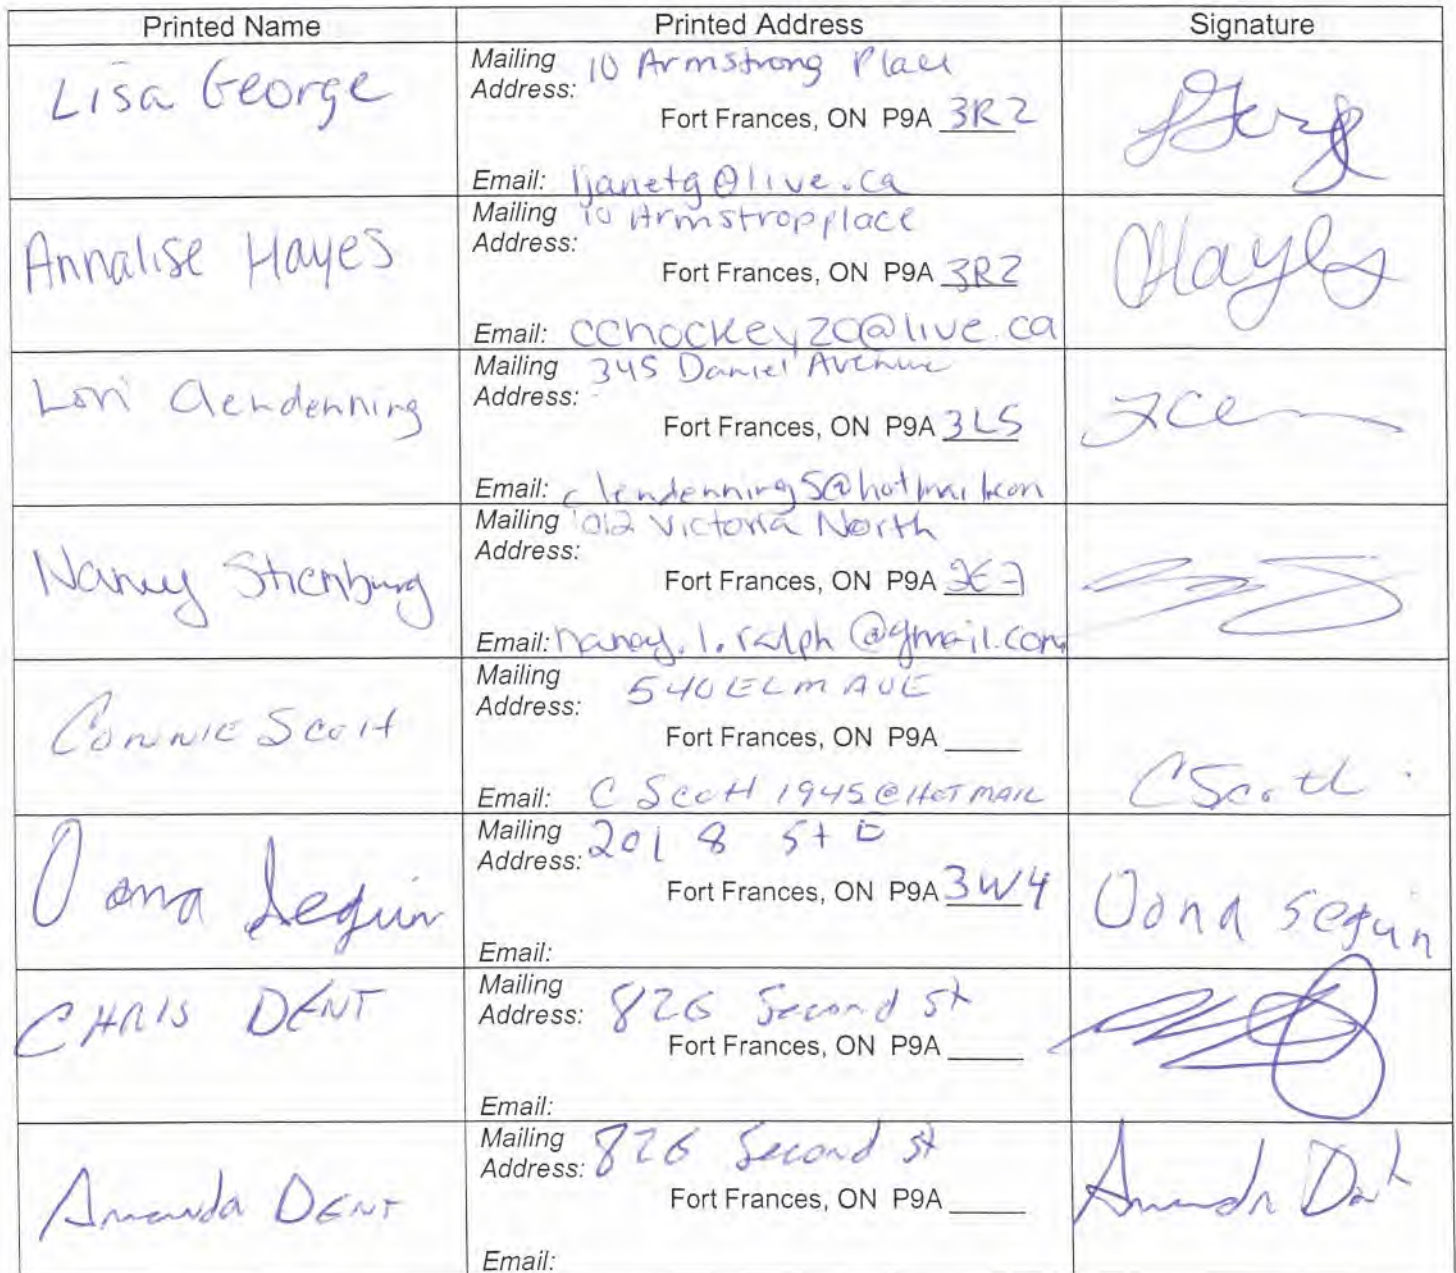 Printed Name Printed Address Signature
Lisa George
Mailing Address: 10 Armstrong Place
Fort Frances, ON P9A 3R2
Email: ljanetg@live.ca
Annalise Hayes
Mailing Address: 10 Armstropplace
Fort Frances, ON P9A 3R2
Email: cchockey20@live.ca
Hayes
Lori Clendenning
Mailing Address: 345 Daniel Avenue
Fort Frances, ON P9A 3L5
Email: clendenning5@hotmail.com
Nancy
Mailing Address: 1012 Victoria North
Fort Frances, ON P9A
Email: nancy.l.ralph@gmail.com
Connie Scott
Mailing Address: 540 ELM AVE
Fort Frances, ON P9A ____
Email: C Scott 1945@HOTMAIL
C Scott
Oona Seguin
Mailing Address: 201 8 St E
Fort Frances, ON P9A 3W4
Email:
Oona Seguin
CHRIS DENT
Mailing Address: 826 Second St
Fort Frances, ON P9A ____
Email:
Amanda DENT
Mailing Address: 826 Second St
Fort Frances, ON P9A ____
Email:
Amanda Dent